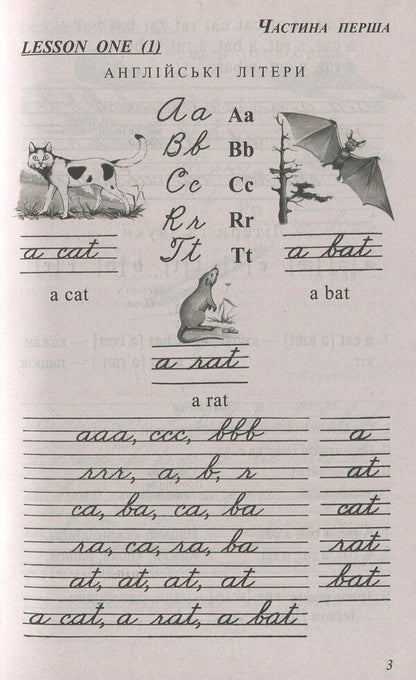 ЧАСТИНА ПЕРША
LESSON ONE (1)
АНГЛІЙСЬКІ ЛІТЕРИ
Aa Aa
Bb Bb
Cc Cc
Rr Rr
Tt Tt
a cat
a cat
a bat
a bat
a rat
a rat
aaa, ccc, bbb a
rrr, a, b, r at
ca, ba, ca, ba cat
ra, ca, ra, ba rat
at, at, at, at bat
a cat, a rat, a bat
3